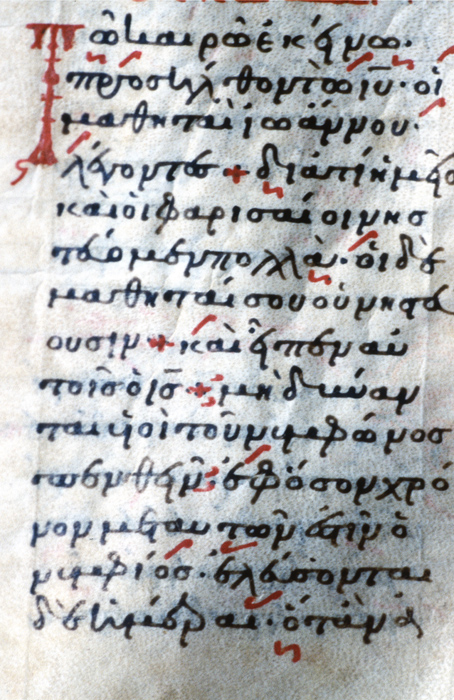 Τῶ καιρῶ ἐκείνω·
προσῆλθον τῶ ἰ̅υ̅· οἱ
μαθηταὶ ἰωάννου·
λέγοντες + διατί ἡμεῖς
καὶ οἱ φαρισαίοι νησ
τεύομεν πολλὰ· οἱ δὲ
μαθηταί σου οὐ νηστεύ
ουσιν + καὶ εἶπεν αὐ
τοῖς ὁ ι̅ς̅ + μὴ δύναν
ται ὑοὶ τοῦ νυμφῶνος
πενθεῖν· ἐφόσον χρό
νον μετ αὐτῶν ἐστὶν ὁ
νυμφίος· ἐλεύσονται
δὲ ἡμέραι· ὅτὰν ἀ